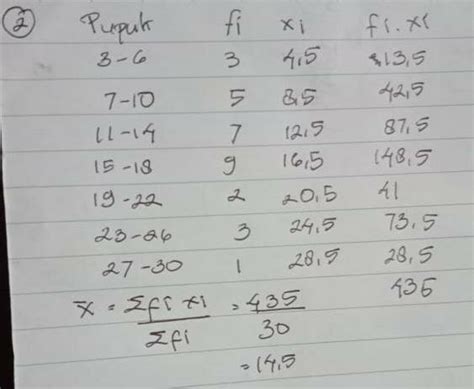 ② Pupuk fi xi fi.xi
3-6 3 4,5 13,5
7-10 5 8,5 42,5
11-14 7 12,5 87,5
15-18 9 16,5 148,5
19-22 2 20,5 41
23-26 3 24,5 73,5
27-30 1 28,5 28,5
x̄ = Σfi xi / Σfi = 435 / 30 435
= 14,5